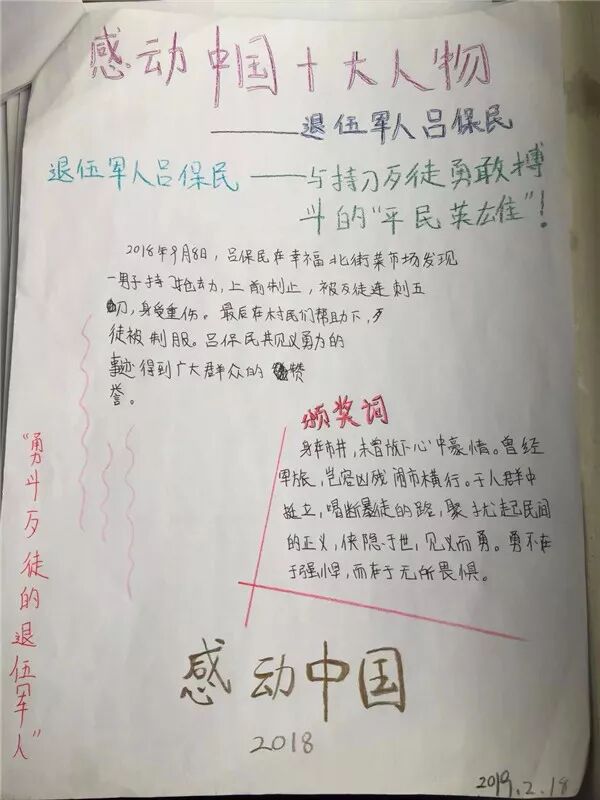 感动中国十大人物
——退伍军人吕保民
退伍军人吕保民——与持刀歹徒勇敢搏
斗的“平民英雄”!
2018年9月8日，吕保民在幸福北街菜市场发现
一男子持刀抢劫，上前制止，被歹徒连刺五
刀，身受重伤。最后在村民们帮助下，歹
徒被制服。吕保民其见义勇为的
事迹得到广大群众的赞
誉。
颁奖词
身在市井，未曾放下心中豪情。曾经
军旅，岂容凶残闹市横行。于人群中
挺立，喝断暴徒的路，聚拢起民间
的正义，侠隐于世，见义而勇。勇不在
于强悍，而在于无所畏惧。
“勇斗歹徒的退伍军人”
感动中国
2018
2019.2.18